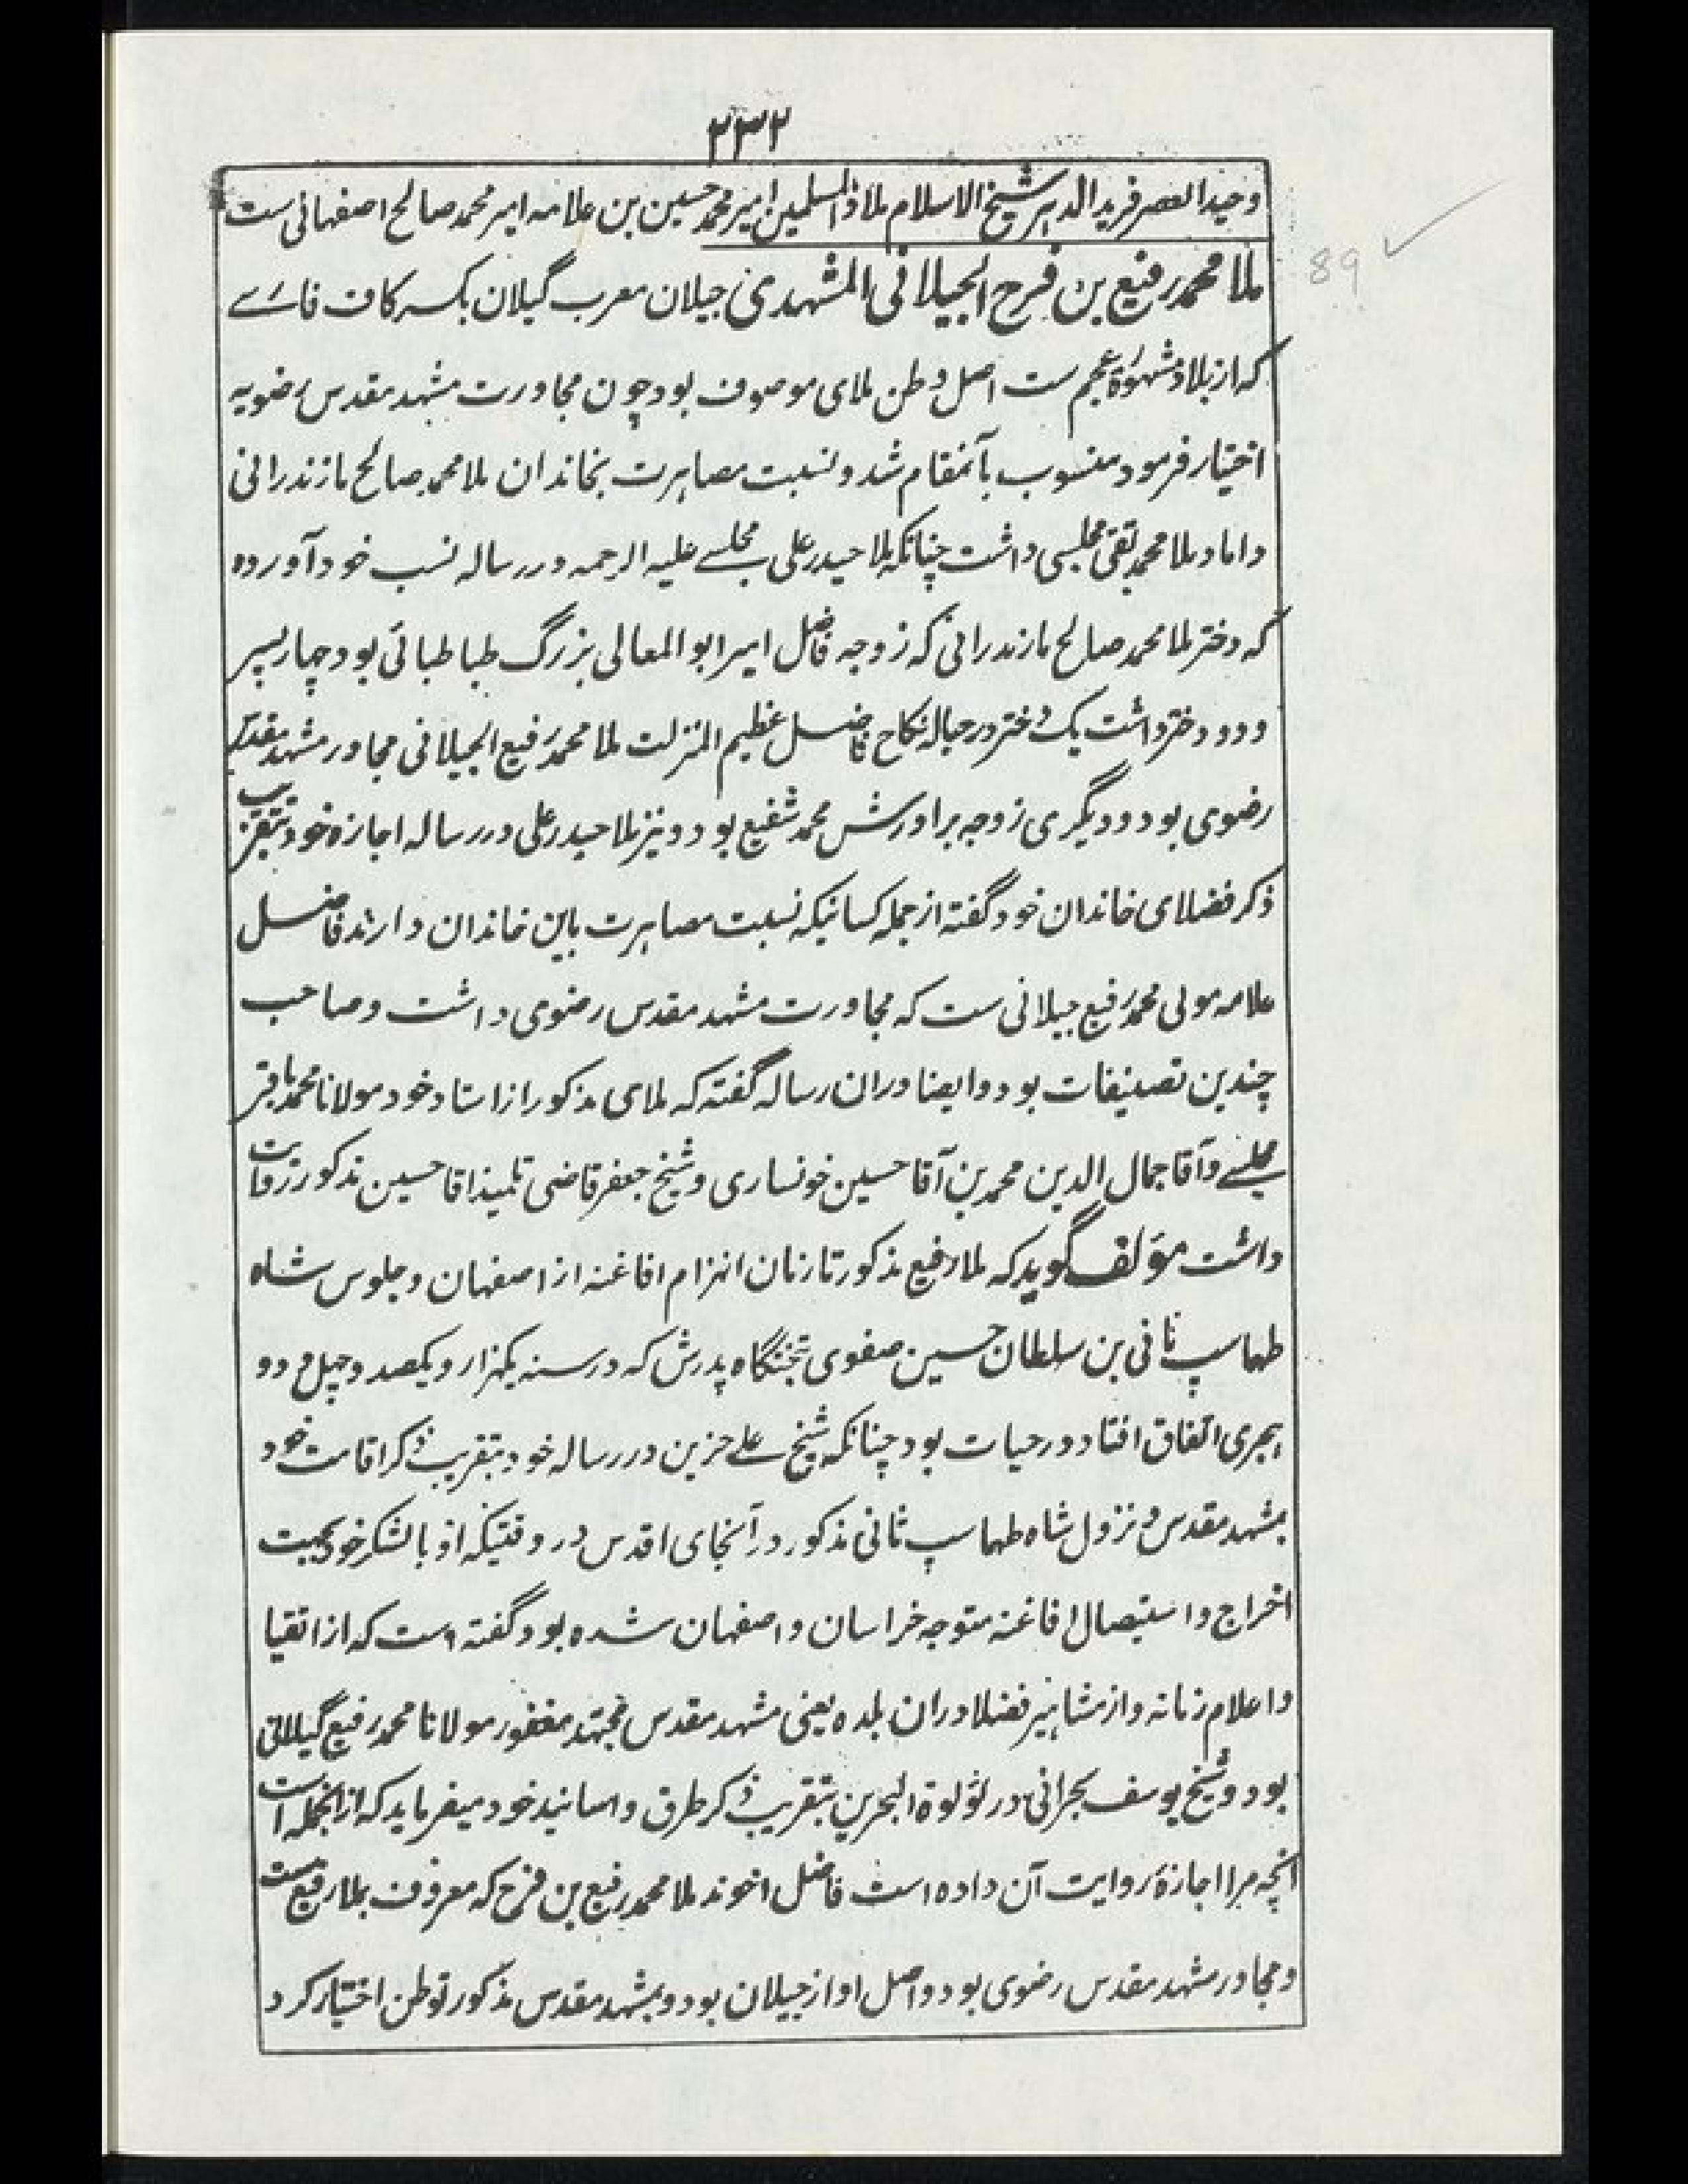 ۲۳۲
وحید العصر فرید الدهر شیخ الاسلام ملاذ المسلمین امیر محمد حسین بن علامه امیر محمد صالح اصفهانی ست
89
ملا محمد رفیع بن فرح الجیلانی المشهدی جیلان معرب گیلان بکسر کاف فارسے
که از بلاد مشهورۂ عجم ست اصل وطن ملای موصوف بود چون مجاورت مشهد مقدس رضویه
اختیار فرمود منسوب بآنمقام شد و نسبت مصاهرت بخاندان ملا محمد صالح مازندرانی
داماد ملا محمد تقی مجلسی داشت چنانکه ملا حیدر علی مجلسے علیه الرحمه در رساله نسب خود آورده
که دختر ملا محمد صالح مازندرانی که زوجه فاضل امیر ابو المعالی بزرگ طباطبائی بود چهار پسر
و دو دختر داشت یک دختر در حباله نکاح فاضل عظیم المنزلت ملا محمد رفیع الجیلانی مجاور مشهد مقدس
رضوی بود و دیگری زوجه برادرش محمد شفیع بود و نیز ملا حیدر علی در رساله اجازه خود بتقریب
ذکر فضلای خاندان خود گفته از جمله کسانیکه نسبت مصاهرت باین خاندان دارند فاضل
علامه مولی محمد رفیع جیلانی ست که مجاورت مشهد مقدس رضوی داشت و صاحب
چندین تصنیفات بود و ایضا دران رساله گفته که ملای مذکور از استاد خود مولانا محمد باقر
مجلسے و آقا جمال الدین محمد بن آقا حسین خونساری و شیخ جعفر قاضی تلمیذ اقا حسین مذکور روایت
داشت مؤلف گوید که ملا رفیع مذکور تا زمان انهزام افاغنه از اصفهان و جلوس شاه
طهماسپ ثانی بن سلطان حسین صفوی بتختگاه پدرش که در سنه یکهزار و یکصد و چهل و دو
هجری اتفاق افتاد در حیات بود چنانکه شیخ علے حزین در رساله خود بتقریب ذکر اقامت خود
بمشهد مقدس و نزول شاه طهماسپ ثانی مذکور در آنجای اقدس در وقتیکه او با لشکر خود بجهت
اخراج و استیصال افاغنه متوجه خراسان و اصفهان شده بود گفته است که از اتقیا
و اعلام زمانه و از مشاهیر فضلا دران بلده یعنی مشهد مقدس مجتهد مغفور مولانا محمد رفیع گیلانی
بود و شیخ یوسف بحرانی در لؤلوة البحرین بتقریب ذکر طرق و اسانید خود میفرماید که ازانجمله است
انچه مرا اجازۂ روایت آن داده است فاضل اخوند ملا محمد رفیع بن فرح که معروف بملا رفیع ست
و مجاور مشهد مقدس رضوی بود و اصل او از جیلان بود و بمشهد مقدس مذکور توطن اختیار کرد